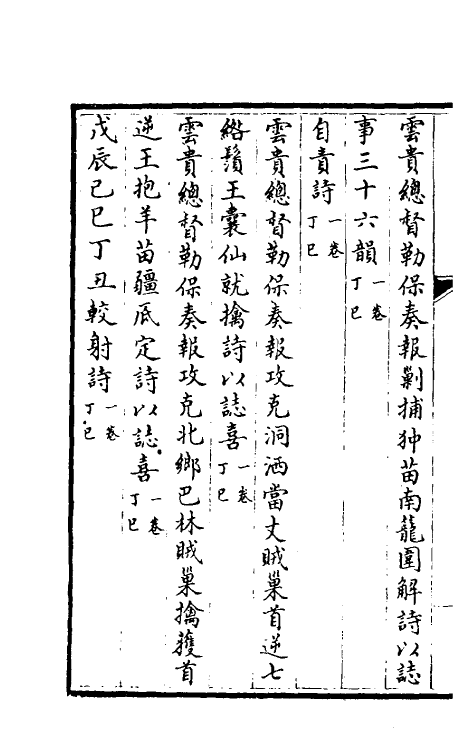 雲貴總督勒保奏報剿捕狆苗南籠圍解詩以誌
事三十六韻一卷丁巳
自責詩一卷丁巳
雲貴總督勒保奏報攻克洞洒當丈賊巢首逆七
綹鬚王囊仙就擒詩以誌喜一卷丁巳
雲貴總督勒保奏報攻克北鄉巴林賊巢擒獲首
逆王抱羊苗疆底定詩以誌喜一卷丁巳
戊辰己巳丁丑較射詩一卷丁巳